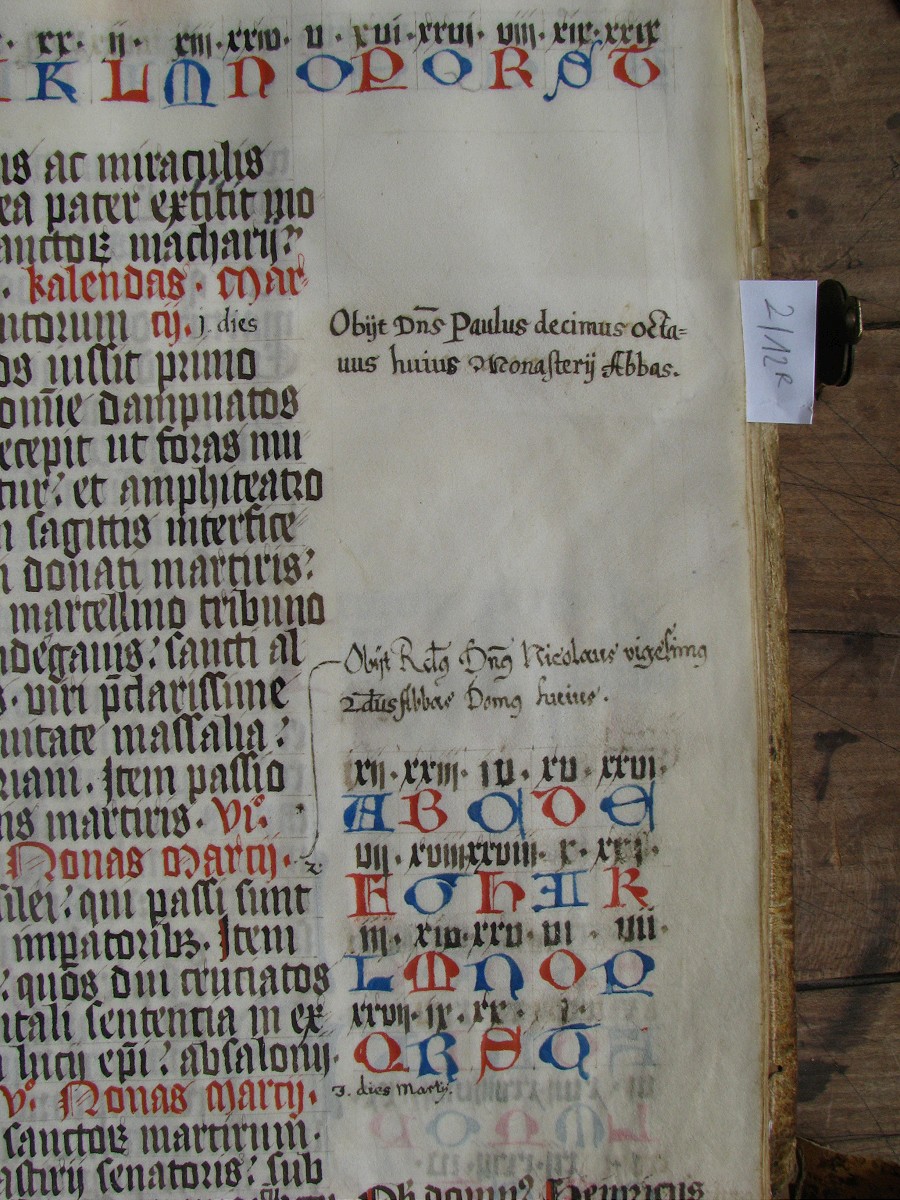 xx · ii · xiii · xxiiii · v · xvi · xxvi · viii · xix · xxix
K L M N O P Q R S T
is ac miraculis
ea pater extitit mo
anctoꝝ macharij?
kalendas · Mar
ij. 1. dies
Obijt Dn̄s Paulus decimus octa=
uus huius Monasterij Abbas.
os iussit primo
om̄ie dampnatos
ecepit ut foras mu
tur? et amphiteatro
sagittis interfice
donati martiris?
marcellino tribuno
sancti al
Obijt Dn̄s Nicolaus vigesimus
2dus Abbas Domus huius.
· viri p̄clarissime
uitate massalia?
riam. Item passio
ns martiris. VI°.
Nonas Martij. 2
xii · xxiii · iv · xv · xxvi ·
A B C D E
vii · xviii xxviii · x · xxi ·
F G H I K
iii · xiv · xxv · vi · vii
L M N O P
xxvii · ix · xx · i ·
Q R S T
silei? qui passi sunt
imp̄atoribꝫ. Item
? quos diu cruciatos
itali sententia in ex
lucij ep̄i? absalonij.
V°. Nonas Martij. 3. dies Martij.
sanctoꝝ martirum.
astirij senatoris? sub
Ob domin? Henricus
2/12R